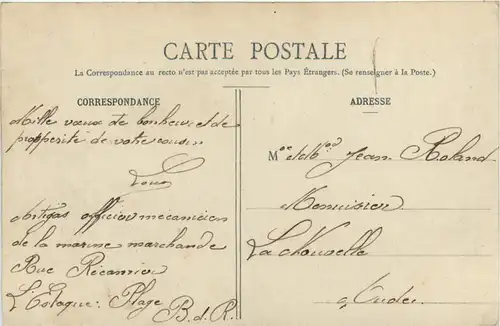 CARTE POSTALE
La Correspondance au recto n'est pas acceptée par tous les Pays Étrangers. (Se renseigner à la Poste.)
CORRESPONDANCE
Mille vœux de bonheur et de
prospérité de votre cousin
Louis
Artigas officier mecanicien
de la marine marchande
Rue Récamier
L'Estaque-Plage B. d. R.
ADRESSE
M Jean Roland
Menuisier
La Nouvelle
Aude